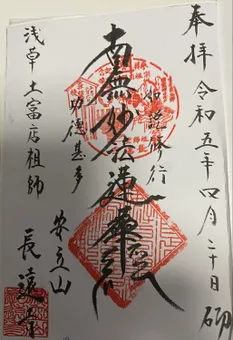 奉拝 令和五年四月二十日
如説修行
南無妙法蓮華経
功徳甚多
安立山
長遠寺
浅草土富店祖師